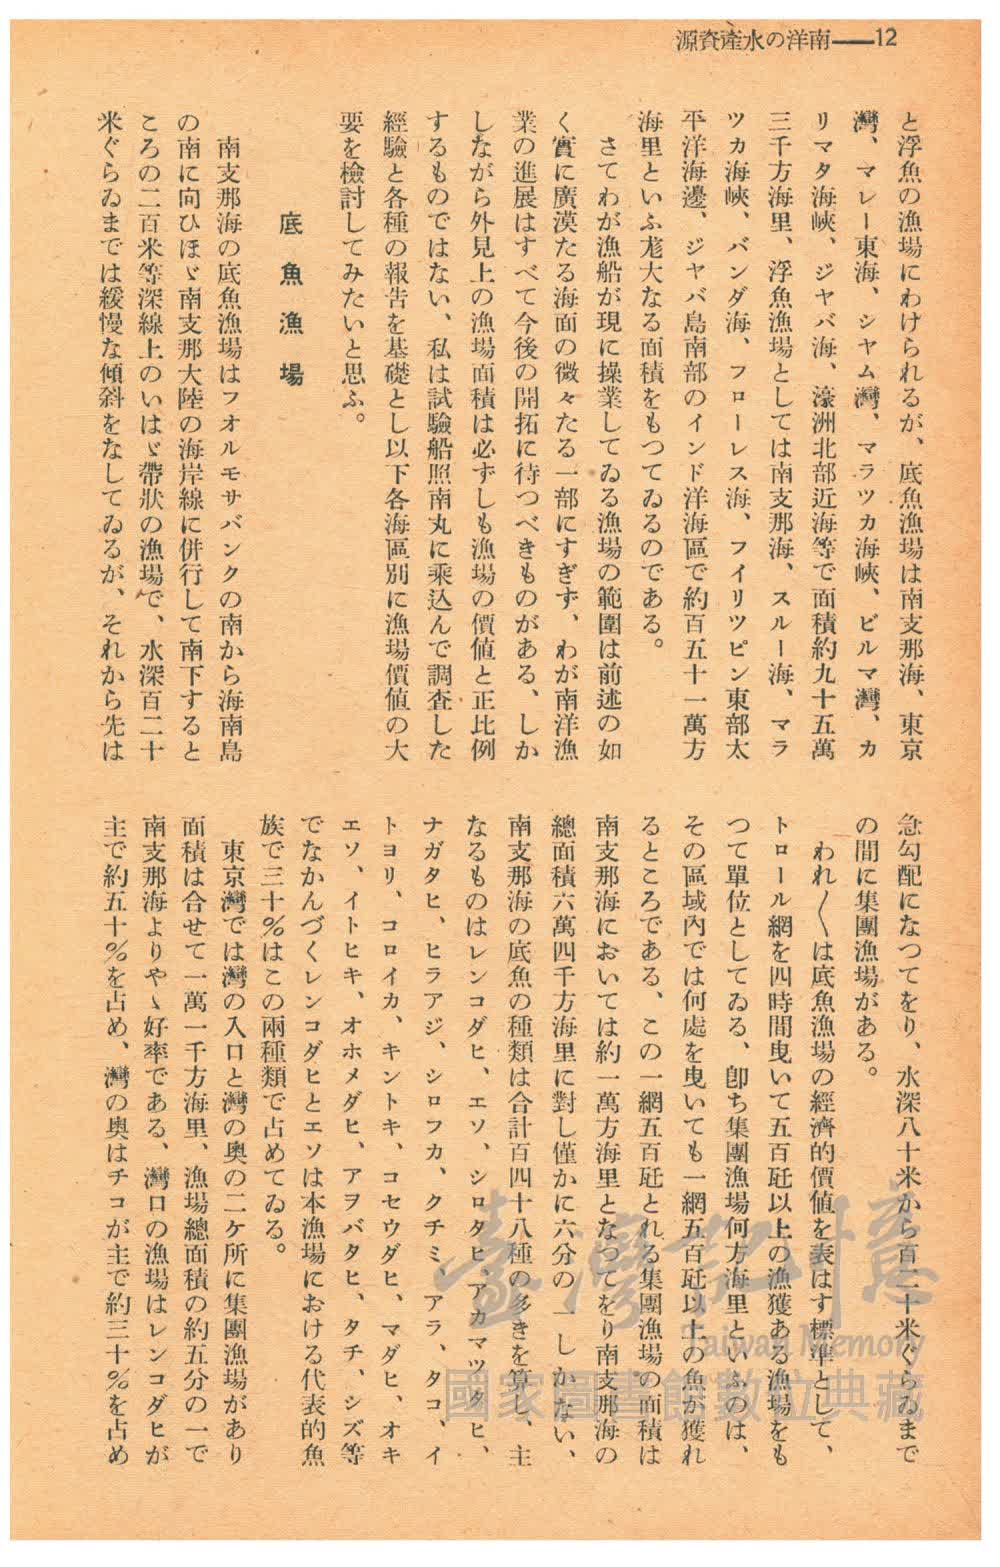 源資産水の洋南――12
と浮魚の漁場にわけられるが、底魚漁場は南支那海、東京
灣、マレー東海、シヤム灣、マラツカ海峽、ビルマ灣、カ
リマタ海峽、ジヤバ海、濠洲北部近海等で面積約九十五萬
三千方海里、浮魚漁場としては南支那海、スルー海、マラ
ツカ海峽、バンダ海、フローレス海、フイリツピン東部太
平洋海邊、ジヤバ島南部のインド洋海區で約百五十一萬方
海里といふ尨大なる面積をもつてゐるのである。
さてわが漁船が現に操業してゐる漁場の範圍は前述の如
く實に廣漠たる海面の微々たる一部にすぎず、わが南洋漁
業の進展はすべて今後の開拓に待つべきものがある、しか
しながら外見上の漁場面積は必ずしも漁場の價値と正比例
するものではない、私は試驗船照南丸に乘込んで調査した
經驗と各種の報告を基礎とし以下各海區別に漁場價値の大
要を檢討してみたいと思ふ。
底魚漁場
南支那海の底魚漁場はフオルモサバンクの南から海南島
の南に向ひほゞ南支那大陸の海岸線に併行して南下すると
ころの二百米等深線上のいはゞ帶狀の漁場で、水深百二十
米ぐらゐまでは緩慢な傾斜をなしてゐるが、それから先は
急勾配になつてをり、水深八十米から百二十米ぐらゐまで
の間に集團漁場がある。
われ〱は底魚漁場の經濟的價値を表はす標準として、
トロール網を四時間曳いて五百瓩以上の漁獲ある漁場をも
つて單位としてゐる、卽ち集團漁場何方海里といふのは、
その區域內では何處を曳いても一網五百瓩以上の魚が獲れ
るところである、この一網五百瓩とれる集團漁場の面積は
南支那海においては約一萬方海里となつてをり南支那海の
總面積六萬四千方海里に對し僅かに六分の一しかない、
南支那海の底魚の種類は合計百四十八種の多きを算し、主
なるものはレンコダヒ、エソ、シロタヒ、アカマツタヒ、
ナガタヒ、ヒラアジ、シロフカ、クチミ、アラ、タコ、イ
トヨリ、コロイカ、キントキ、コセウダヒ、マダヒ、オキ
エソ、イトヒキ、オホメダヒ、アヲバタヒ、タチ、シズ等
でなかんづくレンコダヒとエソは本漁場における代表的魚
族で三十％はこの兩種類で占めてゐる。
東京灣では灣の入口と灣の奥の二ケ所に集團漁場があり
面積は合せて一萬一千方海里、漁場總面積の約五分の一で
南支那海よりやゝ好率である、灣口の漁場はレンコダヒが
主で約五十％を占め、灣の奥はチコが主で約三十％を占め
臺灣記憶
Taiwan Memory
國家圖書館數位典藏